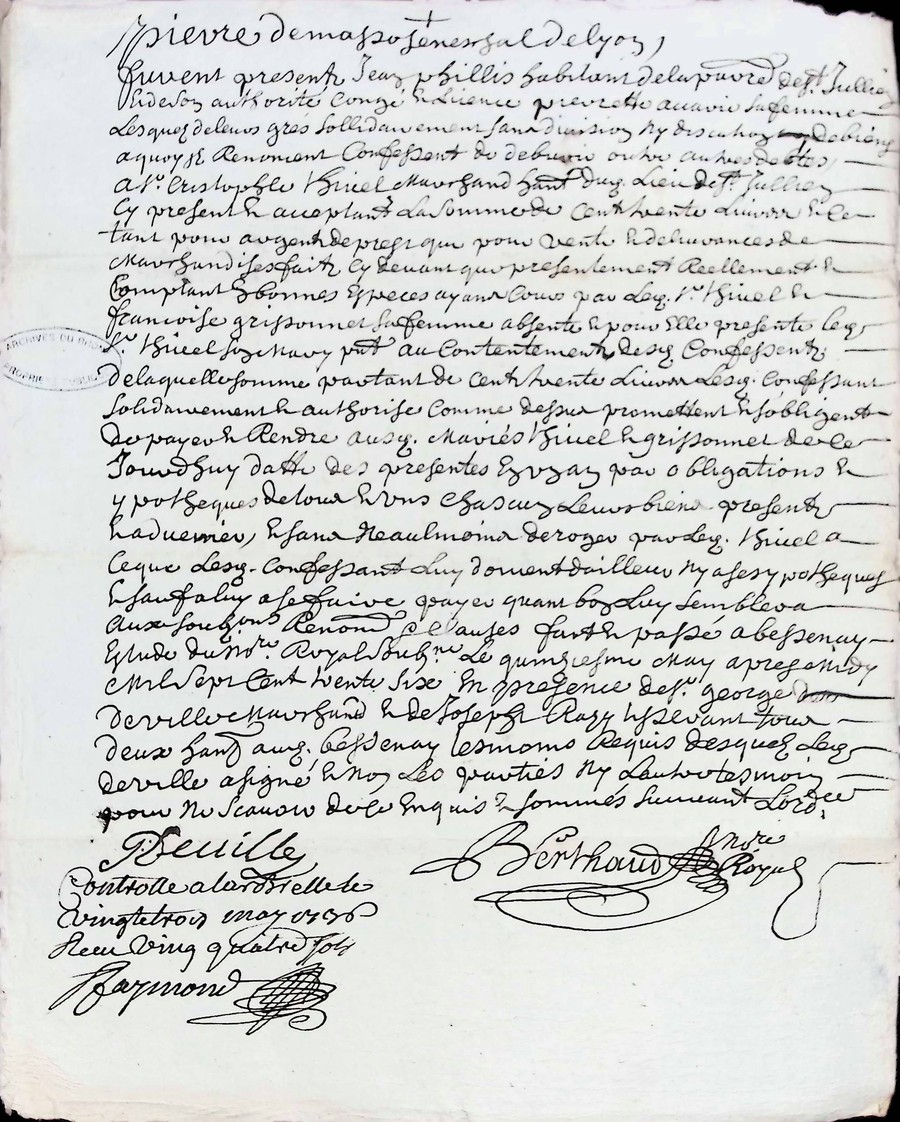 pierre demasso seneshal delyon,
furent presents Jean phillis habitant delaparr.e de st. Jullien
& deson authorité Congé & Licence pierrette
Lesquez deleurs grés Sollidairement sans division Ny discution debiens
aquoy ils Renoncent Confessent de debvoir outre autres debtes,
a Sr. Cristophle thivel Marchand hant. dud. Lieu de st. Jullien
Cy present & acceptant Lasomme de Cent trente Livres & ce
tant pour argent de prest que pour vente & delivrances de
Marchandises faits Cy devant que presentement Reellement &
Comptant En bonnes Especes ayans Cours par Led. Sr. thivel &
francoise grissonnet safemme absente & pour Elle presente led.
Sr. thivel son Mary pnt. au Contentement desd. Confessents
delaquelle somme partant de Cent trente Livres Lesd. Confessans
solidairement & authorise Comme dessus promettent & s'obligent
de payer & Rendre ausd. Mariés thivel & grissonnet de ce
Jourdhuy datte des presentes En un an par obligations &
ypotheques detous & uns chascun Leurs biens presents
& advenir, & sans Neaulmoins deroger par Led. thivel a
Ceque Lesd. Confessans Luy doivent dailleur Ny a ses ypotheques
& sauf aluy a se faire payer quant bon Luy semblera
Aux soub.ons Renond. & Clauses fait & passé a bessenay
Estude du No.re Royal soub.ne Le quinziesme May apres Midy
Mil Sept Cent trente Six En presence de sr. george
deville Marchand & de Joseph Razy tisserant tous
deux hants aud. bessenay tesmoins Requis desquez Led.
deville a signé & Non Les parties Ny Lautre tesmoin
pour Ne scavoir de ce Enquis & sommés suivant Lord.ce
Deville
Berthaud No.re Royal
Controlle a larbrelle le
vingtetrois may 1736
Receu vingt quatre sols
Raymond
ARCHIVES DU
PROPRIETE PUBLIQUE